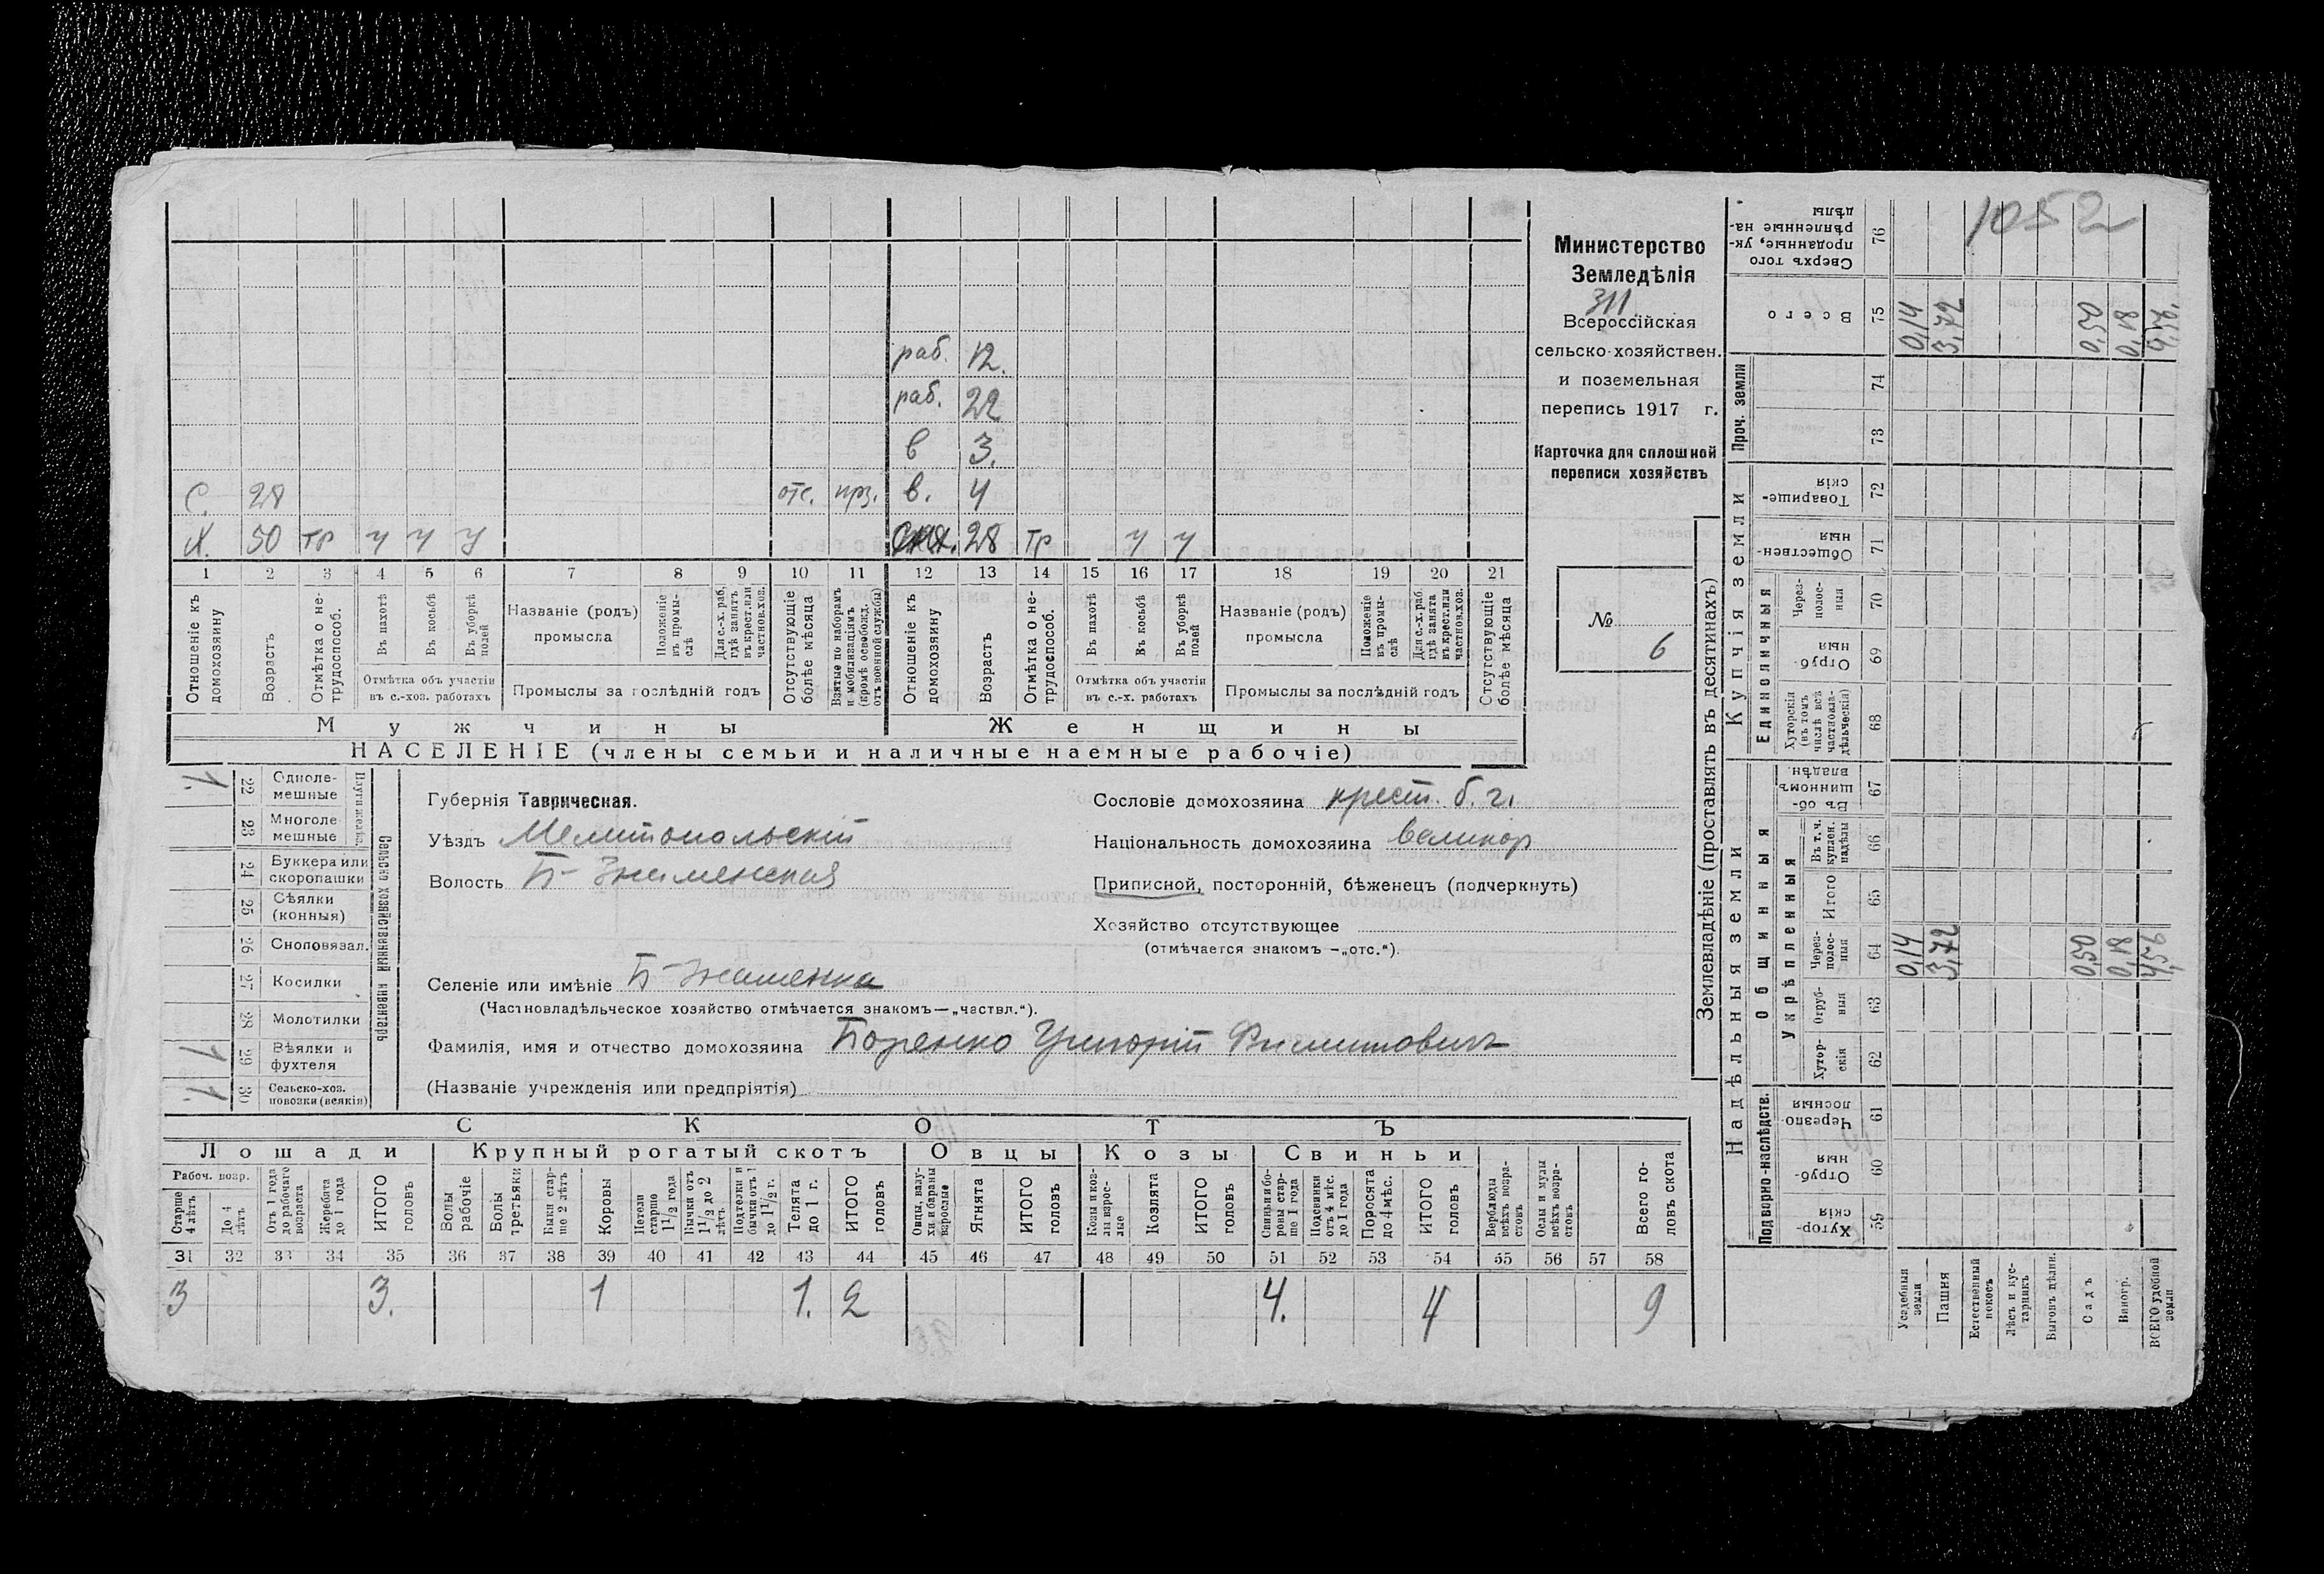 1052
Министерство
Земледѣлія
311
Всероссійская
сельско-хозяйствен.
и поземельная
перепись 1917 г.
Карточка для сплошной
переписи хозяйствъ
№
6
раб. 12.
раб. 22
в 3.
С. 28 отс. в. 4
Х. 50 тр у у у 28 тр у у
1 2 3 4 5 6 7 8 9 10 11 12 13 14 15 16 17 18 19 20 21
Отношеніе къ домохозяину
Возрастъ
Отмѣтка о не-трудоспособ.
Въ пахотѣ
Въ косьбѣ
Въ уборкѣ полей
Отмѣтка объ участіи въ с.-хоз. работахъ
Названіе (родъ) промысла
Положеніе въ промы-слѣ
Для с.-х. раб. гдѣ занятъ въ крест. или частнов. хоз.
Промыслы за послѣдній годъ
Отсутствующіе болѣе мѣсяца
Взятые по наборамъ и мобилизаціямъ (кромѣ освобожд. отъ военной службы)
Отношеніе къ домохозяину
Возрастъ
Отмѣтка о не-трудоспособ.
Въ пахотѣ
Въ косьбѣ
Въ уборкѣ полей
Отмѣтка объ участіи въ с.-х. работахъ
Названіе (родъ) промысла
Положеніе въ промы-слѣ
Для с.-х. раб. гдѣ занята въ крест. или частнов. хоз.
Промыслы за послѣдній годъ
Отсутствующіе болѣе мѣсяца
Мужчины
Женщины
НАСЕЛЕНІЕ (члены семьи и наличные наемные рабочіе)
Сельско хозяйственный инвентарь
Плуги желѣз.
1 22 Одноле-мешные
23 Многоле мешные
24 Буккера или скоропашки
25 Сѣялки (конныя)
26 Сноповязал.
27 Косилки
28 Молотилки
1 29 Вѣялки и фухтеля
1. 30 Сельско-хоз. повозки (всякія)
Губернія Таврическая.
Уѣздъ Мелитопольскій
Волость Б-Знаменская
Селеніе или имѣніе Б-Знаменка
(Частновладѣльческое хозяйство отмѣчается знакомъ—„частвл.“).
Фамилія, имя и отчество домохозяина Григорій
(Названіе учрежденія или предпріятія)
Сословіе домохозяина крест.
Національность домохозяина великор
Приписной, посторонній, бѣженецъ (подчеркнуть)
Хозяйство отсутствующее
(отмѣчается знакомъ —„отс.“).
СКОТЪ
Лошади
Крупный рогатый скотъ
Овцы
Козы
Свиньи
Рабоч. возр.
Старше 4 лѣтъ
До 4 лѣтъ
Отъ 1 года до рабочаго возраста
Жеребята до 1 года
ИТОГО головъ
Волы рабочіе
Волы третьяки
Быки стар-ше 2 лѣтъ
Коровы
Нетели старше 1 1/2 года
Бычки отъ 1 1/2 до 2 лѣтъ
Подтелки и бычки отъ 1 до 1 1/2 г.
Телята до 1 г.
ИТОГО головъ
Овцы, валу-хи и бараны взрослые
Ягнята
ИТОГО головъ
Козы и коз-лы взрос-лые
Козлята
ИТОГО головъ
Свиньи и бо-ровы стар-ше 1 года
Подсвинки отъ 4 мѣс. до 1 года
Поросята до 4 мѣс.
ИТОГО головъ
Верблюды всѣхъ возра-стовъ
Ослы и мулы всѣхъ возра-стовъ
Всего го-ловъ скота
31 32 33 34 35 36 37 38 39 40 41 42 43 44 45 46 47 48 49 50 51 52 53 54 55 56 57 58
3 3. 1 1. 2 4. 4 9
Землевладѣніе (проставлять въ десятинахъ)
Надѣльныя земли
Купчія земли
Проч. земли
Подворно-наслѣдств.
Общинныя
Укрѣпленныя
Единоличныя
Сверхъ того проданные, ук-рѣпленные на-дѣлы 76
Всего 75 0,14 3,72 0,50 0,18
74
73
Товарище-скія 72
Обществен-ныя 71
Через-полос-ныя 70
Отруб-ныя 69
Хуторскія (въ томъ числѣ всѣ частновла-дѣльческія) 68
Въ об-щинномъ владѣн. 67
Въ т. ч. куплен. надѣлы 66
Итого 65
Через-полос-ныя 64 0,14 3,72 0,50 0,18
Отруб-ныя 63
Хутор-скія 62
Черезпо-лосныя 61
Отруб-ныя 60
Хутор-скія 59
Усадебныя земли
Пашня
Естественный покосъ
Лѣсъ и кус-тарникъ
Выгонъ дѣлин.
Садъ
Виногр.
ВСЕГО удобной земли